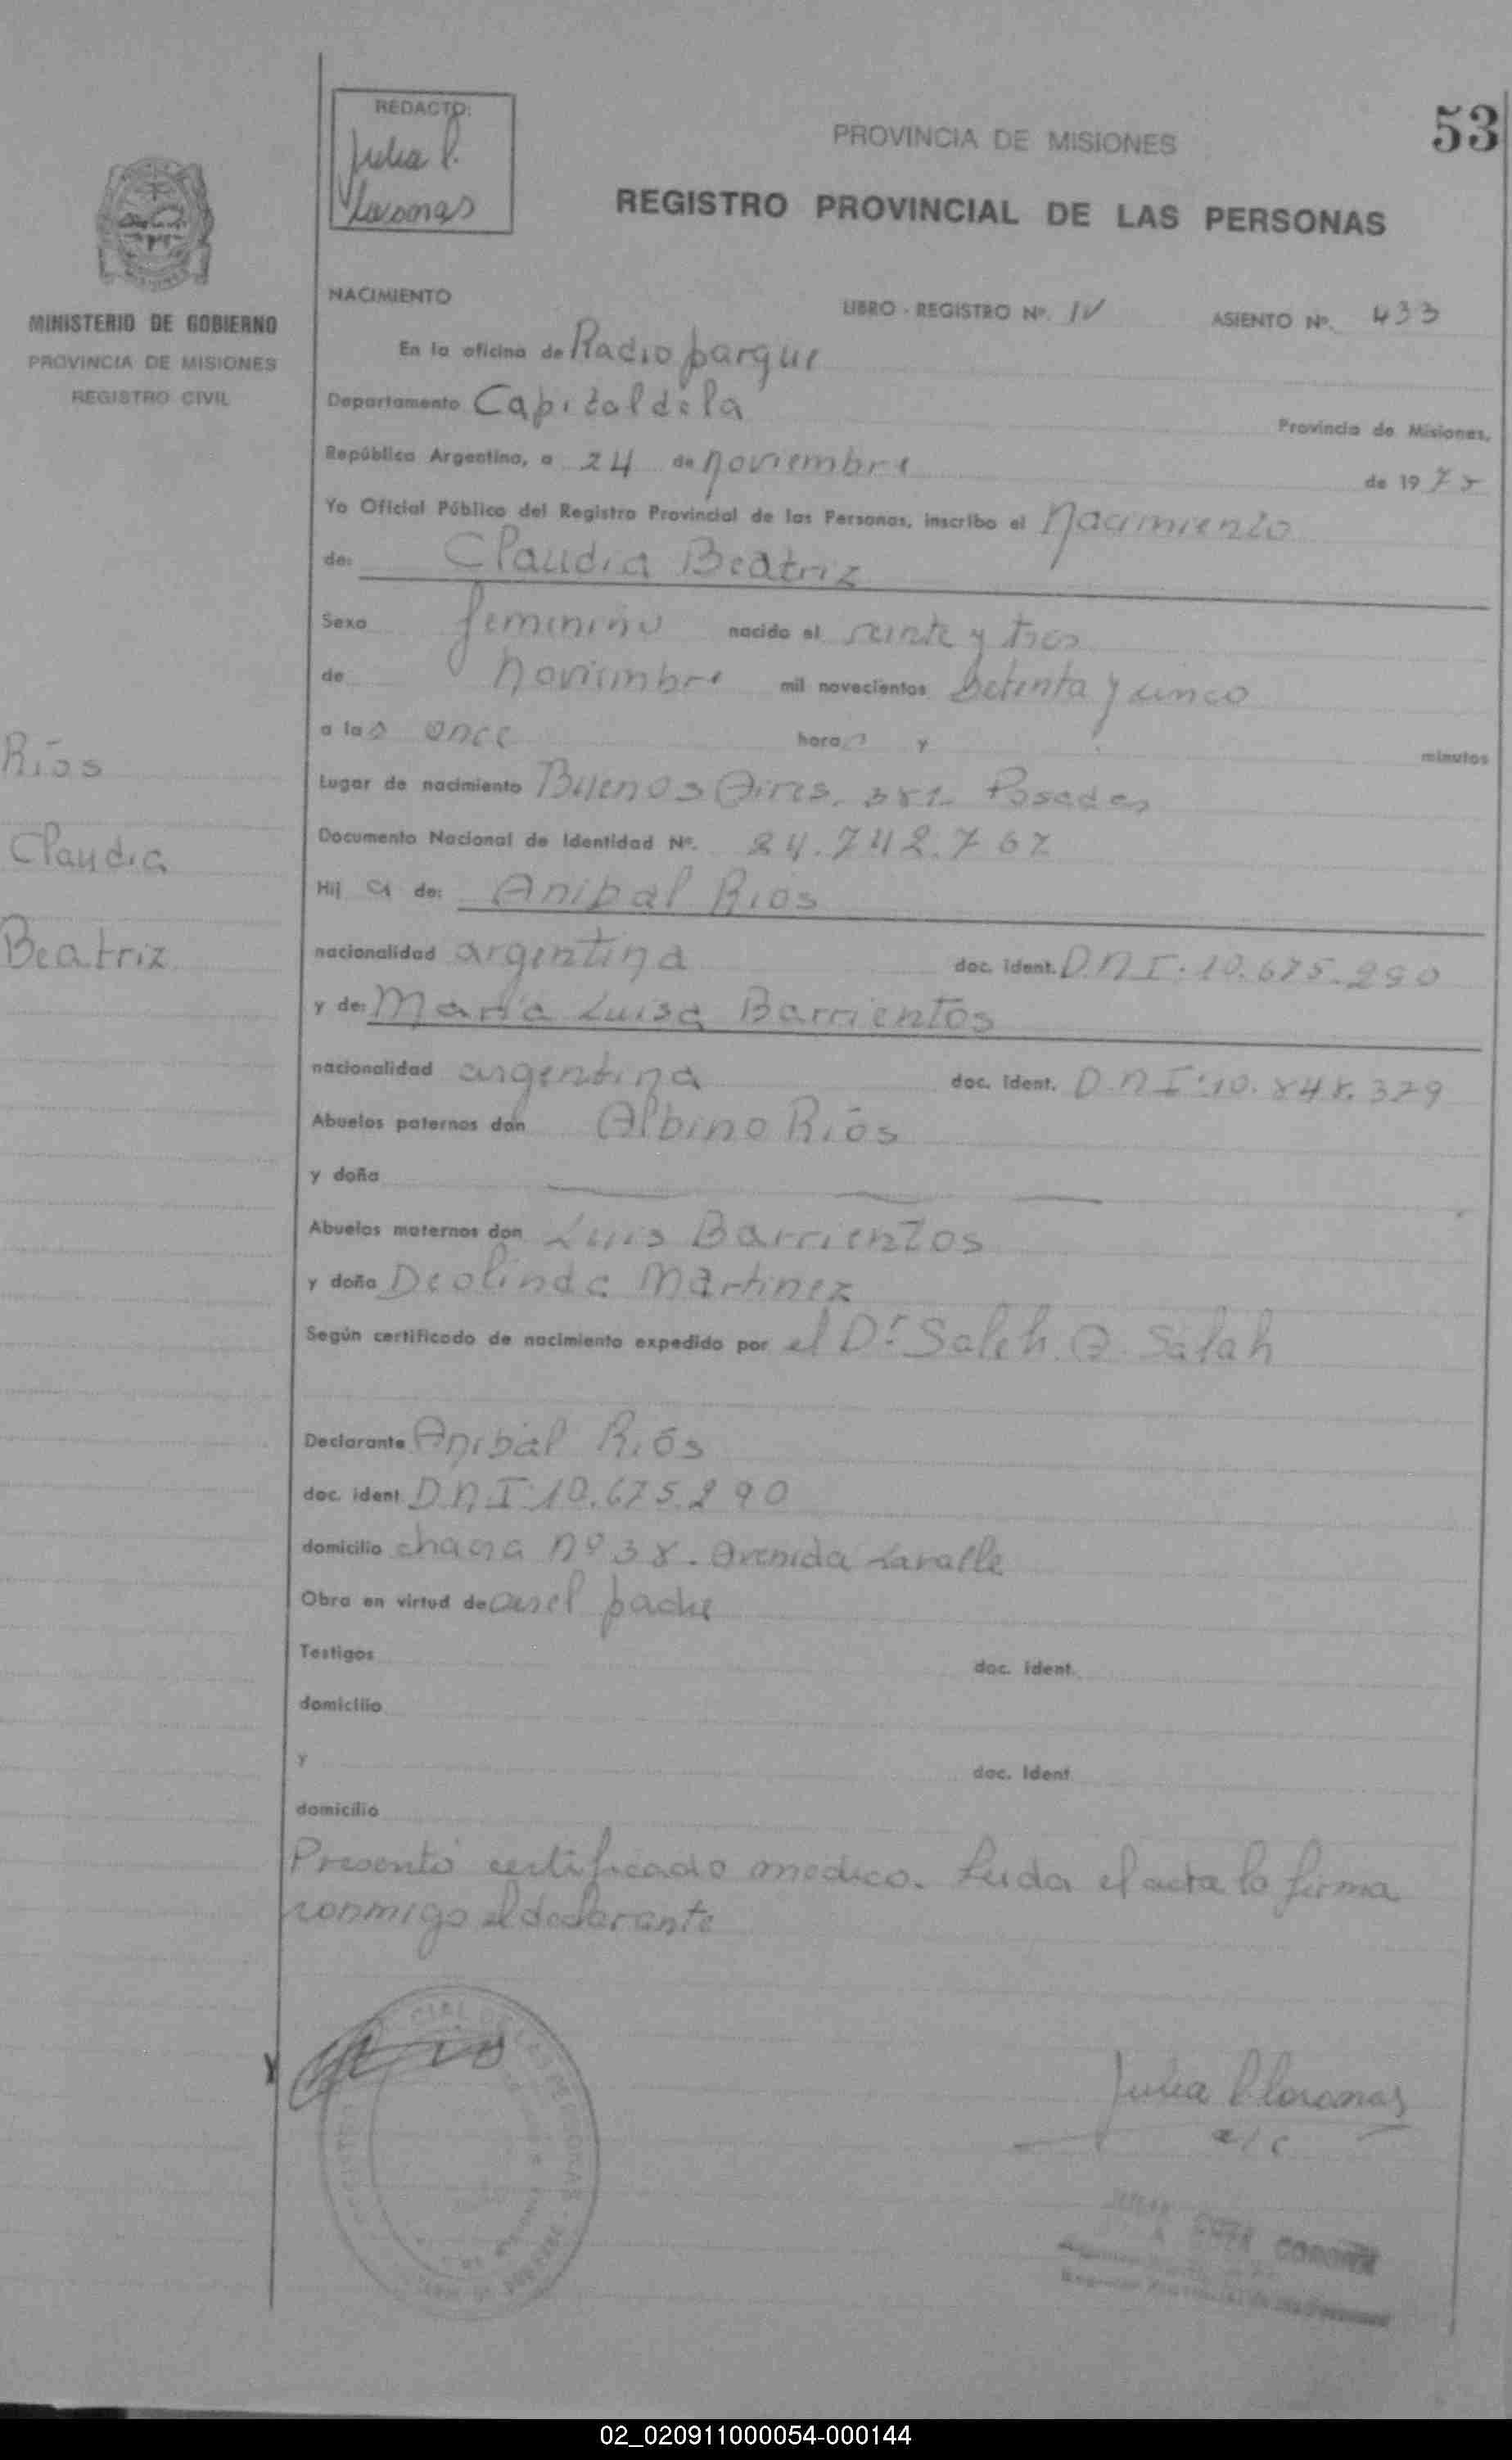 53
REDACTO:
Julia P.
PROVINCIA DE MISIONES
REGISTRO PROVINCIAL DE LAS PERSONAS
MINISTERIO DE GOBIERNO
PROVINCIA DE MISIONES
REGISTRO CIVIL
NACIMIENTO LIBRO - REGISTRO Nº. IV ASIENTO Nº. 433
En la oficina de Radio parque
Departamento Capital de la Provincia de Misiones,
República Argentina, a 24 de noviembre de 1975
Yo Oficial Público del Registro Provincial de las Personas, inscribo el Nacimiento
de: Claudia Beatriz
Sexo femenino nacido el veinte y tres
de noviembre mil novecientos setenta y cinco
a las once horas y minutos
Ríos
Claudia
Beatriz
Lugar de nacimiento Buenos Aires. Posadas
Documento Nacional de Identidad Nº. 24.742.767
Hij a de: Anibal Rios
nacionalidad argentina doc. ident. D.N.I. 10.675.290
y de: María Luisa Barrientos
nacionalidad argentina doc. ident. D.N.I. 10.848.329
Abuelos paternos don Albino Ríos
y doña
Abuelos maternos don Luis Barrientos
y doña Deolinda Martinez
Según certificado de nacimiento expedido por el Dr. Saleh A. Salah
Declarante Anibal Ríos
doc. ident. D.N.I 10.675.290
domicilio chacra nº 38. Avenida Lavalle
Obra en virtud de ser el padre
Testigos doc. ident.
domicilio
y doc. Ident
domicilio
Presentó certificado medico. Leida el acta la firma
conmigo el declarante
Julia P.
02_020911000054-000144